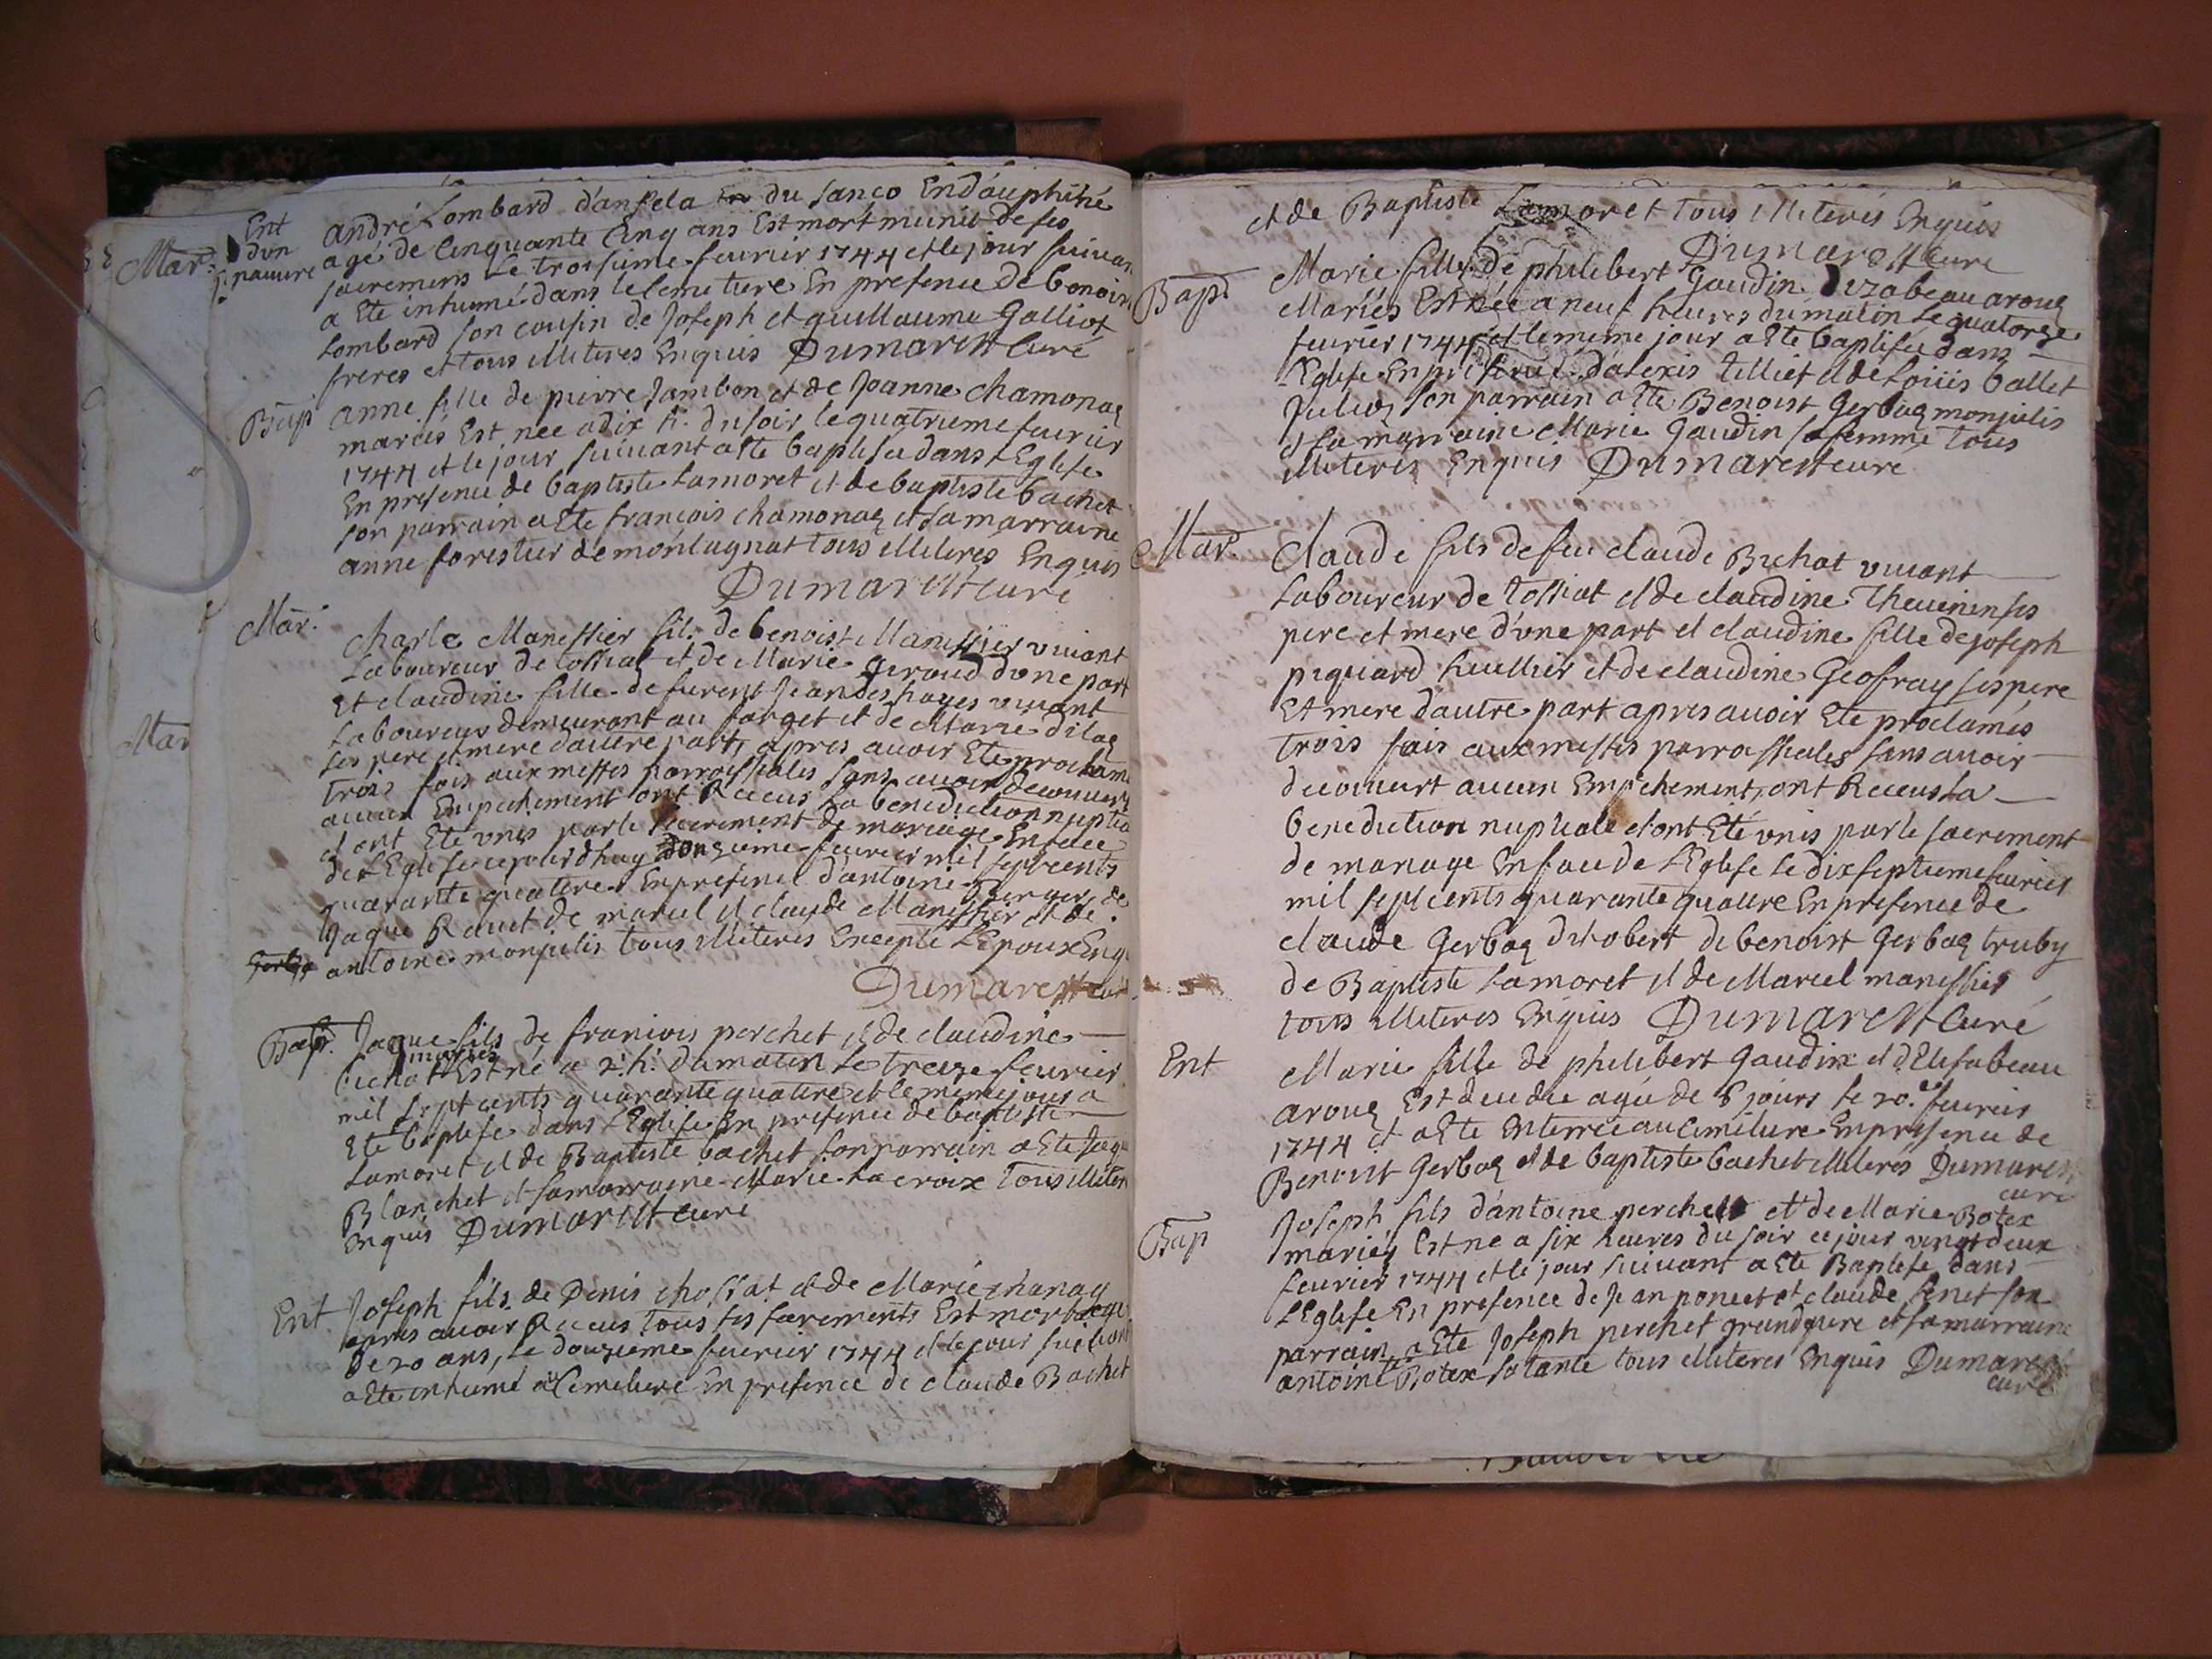 Mar.
Mar
Ent
d'vn
pauure
andré Lombard d'ansela du sanco En dauphiné
agé de Cinquante Cinq ans Est mort munis de ses
sacremens Le troisieme feurier 1744 et le jour suiuan
a Ete inhumé dans le Cemetiere En presence de benoist
Lombard son cousin de Joseph et guillaume Galliot
freres et tous illiteres Enquis Dumarest Curé
Bap
anne fille de pierre Jambon et de Joanne chamonaz
mariés Est née a dix h. du soir le quatrieme feurier
1744 et le jour suiuant a Ete baptisée dans l'Eglise
En presence de baptiste Lamoret et de baptiste bachet
son parrain a Ete francois chamonaz et sa marraine
anne forestier de montagnat tous illiteres Enquis
Dumarest curé
Mar.
Charle Manissier fils de benoist Manissier viuant
Laboureur de tossiat et de Marie Geroud d'vne part
Et claudine fille de furent Jean deshayes viuant
Laboureur demeurant au farget et de Marie dilaz
ses pere et mere d'autre part, apres auoir Ete proclamé
trois fois aux messes parroissiales sans auoir decouuert
aucun Empechement ont Receus La benediction nuptia
et ont Eté vnis par le sacrement de mariage En face
de L'Eglise cejourd'huy douzieme feurier mil sept cents
quarante quatere En presence d'antoine Berger de
Jaque Rauet de marcel et claude Manissier et de
antoine monjulis tous illiteres Excepté L'Epoux Enq
Dumarest curé
Bap. Jaque fils de francois perchet et de claudine
mariés
Cuchat Est né a 2. h. du matin Le treize feurier
mil sept cents quarante quatere et le meme jour a
Eté baptisé dans l'Eglise En presence de baptiste
Lamoret et de Baptiste bachet son parrain a Ete Jaque
Blanchet et sa marraine Marie La croix tous illiter
Enquis Dumarest curé
Ent Joseph fils de Denis chossat et de Marie chanaz
apres auoir Receus tous ses sacrements Est mort agé
De 20 ans, le douzieme feurier 1744 et le jour suiuant
a Ete inhumé au Cemetiere En presence de claude Bachet
et de Baptiste Lamoret tous illiterés Enquis
Dumarest Curé
Bap
Marie fille de philibert Gaudin d'izabeau arouz
Mariés Est née a neuf heures du matin Le quatorze
feurier 1744 et le meme jour a Ete baptisée dans
L'Eglise En presence d'alexis tilliet et de Loüis ballet
Julin son parrain a Ete Benoist Gerbaz monjulis
et la marraine Marie Gaudin sa femme tous
illiteres Enquis Dumarest curé
Mar.
Claude fils de feu claude Buchat viuant
Laboureur de tossiat et de claudine Theuenin ses
pere et mere d'vne part et claudine fille de joseph
piquard huillier et de claudine Geofray ses pere
Et mere d'autre part apres auoir Ete proclamés
trois fois aux messes parroissiales sans auoir
decouuert aucun Empechement, ont Receus La
benediction nuptiale et ont Eté vnis par le sacrement
de mariage En face de L'Eglise Le dix septieme feurier
mil sept cents quarante quattre En presence de
claude Gerbaz dit obert de benoist Gerbaz truby
de Baptiste Lamoret et de Marcel manissier
tous illiteres Enquis Dumarest Curé
Ent
Marie fille de philibert Gaudin et d'Elisabeau
arouz Est decedée agée de 6 jours le 20.e feurier
1744 et a Ete Enterrée au Cemetiere En presence de
Benoist Gerbaz et de baptiste bachet illiterés Dumarest
curé
Bap
Joseph fils d'antoine perchet et de Marie Botex
mariés Est né a six heures du soir ce jour vingt deux
feurier 1744 et le jour suiuant a Ete Baptisé dans
l'Eglise En presence de Jean poncet et claude Penet son
parrain a Ete Joseph perchet grand pere et sa marraine
antoine Botex sa tante tous illiteres Enquis Dumarest
curé